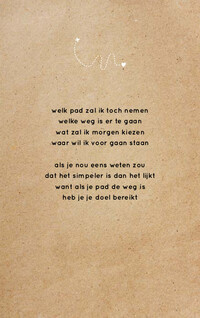 welk pad zal ik toch nemen
welke weg is er te gaan
wat zal ik morgen kiezen
waar wil ik voor gaan staan
als je nou eens weten zou
dat het simpeler is dan het lijkt
want als je pad de weg is
heb je je doel bereikt